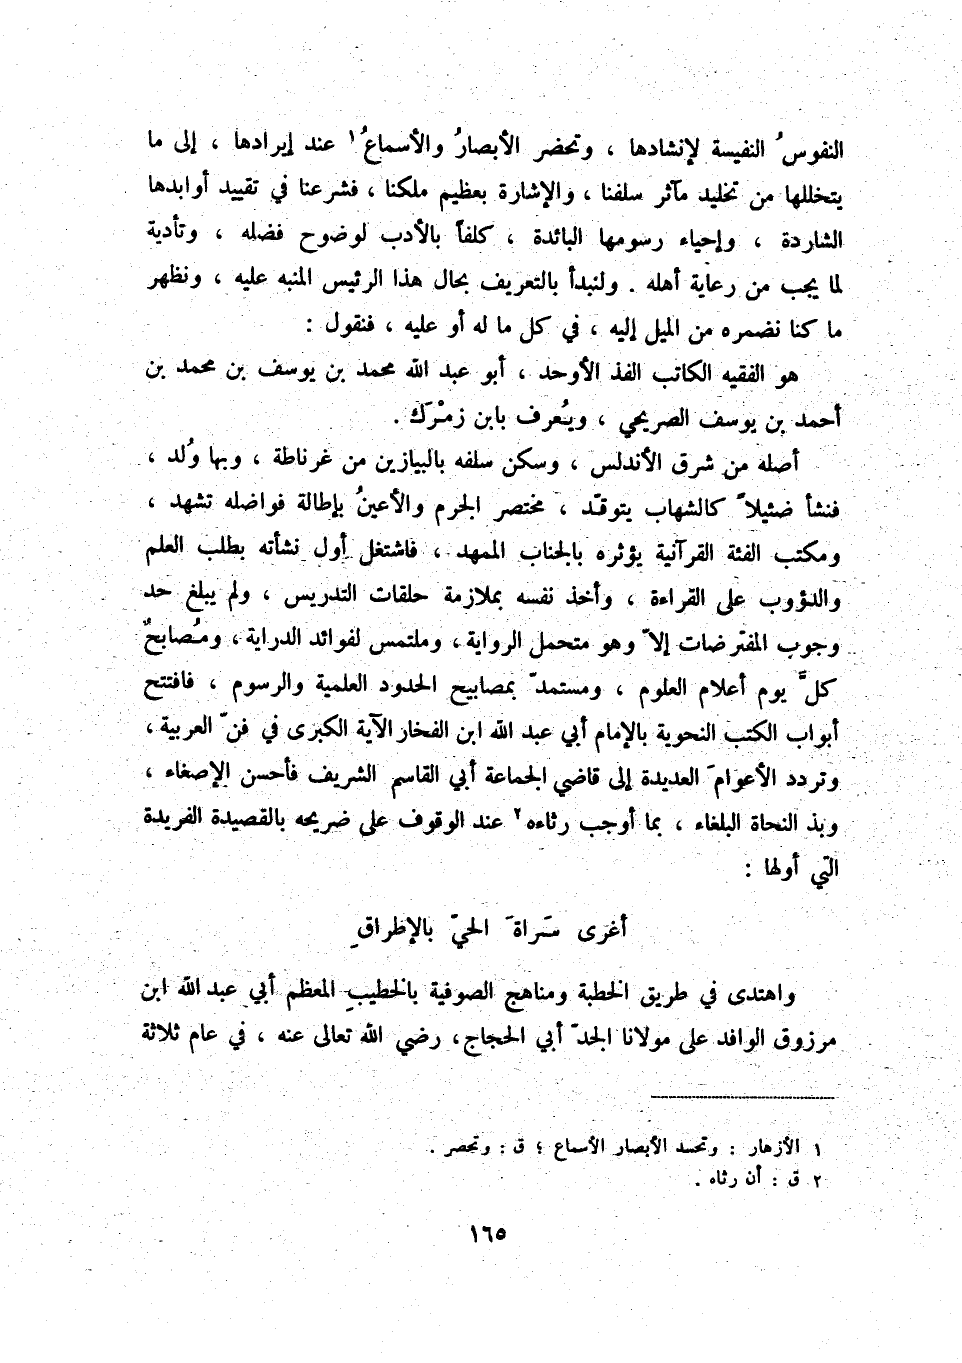 النفوسُ النفيسة لإنشادها ، وتحضر الأبصارُ والأسماعُ١ عند إيرادها ، إلى ما
يتخللها من تخليد مآثر سلفنا ، والإشارة بعظيم ملكنا ، فشرعنا في تقييد أوابدها
الشاردة ، وإحياء رسومها البائدة ، كلفاً بالأدب لوضوح فضله ، وتأدية
لما يجب من رعاية أهله . ولنبدأ بالتعريف بحال هذا الرئيس المنبه عليه ، ونظهر
ما كنا نضمره من الميل إليه ، في كل ما له أو عليه ، فنقول :
هو الفقيه الكاتب الفذ الأوحد ، أبو عبد الله محمد بن يوسف بن محمد بن
أحمد بن يوسف الصريحي ، ويُعرف بابن زمْرَك .
أصله من شرق الأندلس ، وسكن سلفه بالبيازين من غرناطة ، وبها وُلد ،
فنشأ ضئيلاً كالشهاب يتوقّد ، مختصر الجرم والأعينُ بإطالة فواضله تشهد ،
ومكتب الفئة القرآنية يؤثره بالجناب الممهد ، فاشتغل أول نشأته بطلب العلم
والدؤوب على القراءة ، وأخذ نفسه بملازمة حلقات التدريس ، ولم يبلغ حد
وجوب المفترضات إلاّ وهو متحمل الرواية ، وملتمس لفوائد الدراية ، ومُصابحٌ
كلَّ يوم أعلام العلوم ، ومستمدّ بمصابيح الحدود العلمية والرسوم ، فافتتح
أبواب الكتب النحوية بالإمام أبي عبد الله ابن الفخار الآية الكبرى في فنّ العربية ،
وتردد الأعوامَ العديدة إلى قاضي الجماعة أبي القاسم الشريف فأحسن الإصغاء ،
وبذ النحاة البلغاء ، بما أوجب رثاءه٢ عند الوقوف على ضريحه بالقصيدة الفريدة
التي أولها :
أغرى سَراةَ الحيّ بالإطراقِ
واهتدى في طريق الخطبة ومناهج الصوفية بالخطيب المعظم أبي عبد الله ابن
مرزوق الوافد على مولانا الجدّ أبي الحجاج ، رضي الله تعالى عنه ، في عام ثلاثة
١ الأزهار : وتحسد الأبصار الأسماع ؛ ق : وتحصر .
٢ ق : أن رثاه .
١٦٥